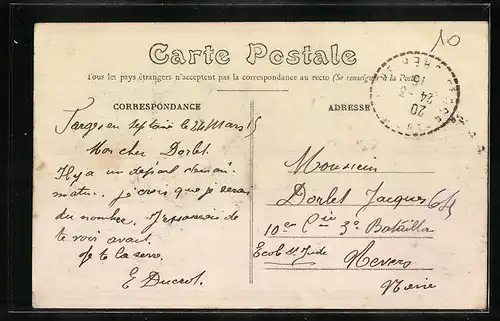 Carte Postale
Tous les pays étrangers n'acceptent pas la correspondance au recto (Se renseigner à la Poste)
CORRESPONDANCE
ADRESSE
10
20
24 -3
15
Farges en Septaine le 24 Mars 15
Mon cher Dorlet.
Il y a un départ demain
matin. je crois que je serai
du nombre. J'essaierai de
te voir avant.
Je te la serre.
E Ducrot.
Monsieur
Dorlet Jacques
10e Cie 3e Bataillon
Nevers
Nièvre